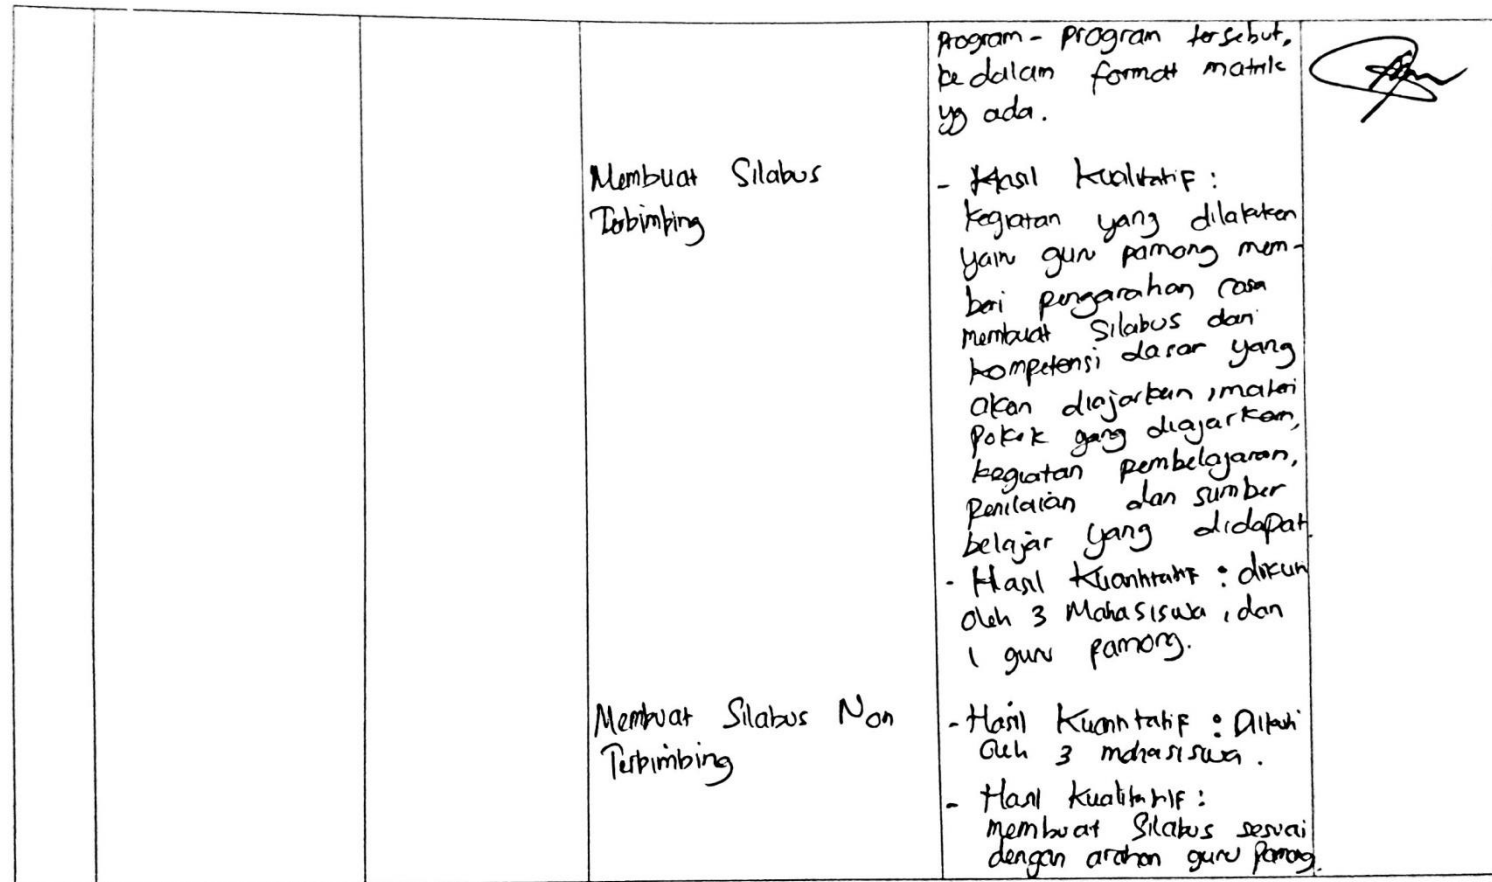 program - program tersebut,
ke dalam format matrik
yg ada.
Membuat Silabus
Terbimbing
- Hasil Kualitatif :
kegiatan yang dilakukan
yaitu guru pamong mem-
beri pengarahan cara
membuat Silabus dari
kompetensi dasar yang
akan diajarkan, materi
pokok yang diajarkan,
kegiatan pembelajaran,
penilaian dan sumber
belajar yang didapat.
- Hasil Kuantitatif : diikuti
oleh 3 Mahasiswa, dan
1 guru pamong.
Membuat Silabus Non
Terbimbing
- Hasil Kuantitatif : Diikuti
Oleh 3 mahasiswa.
- Hasil Kualitatif :
membuat Silabus sesuai
dengan arahan guru pamong.